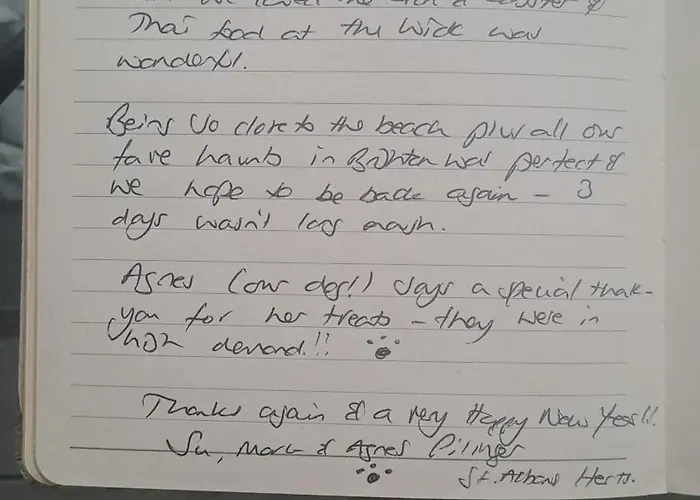 we loved the
Thai food at the Wick was
wonderful.
Being so close to the beach plus all our
fave haunts in Brighton was perfect &
we hope to be back again - 3
days wasn't long enough.
Agnes (our dog!!) says a special thank-
you for her treats - they were in
high demand!!
Thanks again & a very Happy New Year!!
Su, Mark & Agnes
St. Albans Herts.